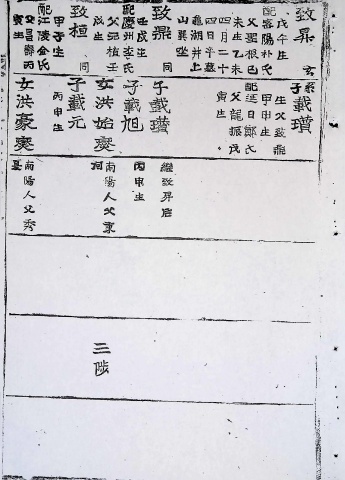 致昇 玄
戊午生
配密陽朴氏
父聖根己
未生乙未
四月二十
四日卒墓
龜湖井上
山巽坐
致鼎 同
壬戌生
配慶州李氏
父元植壬
戌生
致桓 同
甲子生
配江陵金氏
父昌舜丙
寅生
系子載瓚
生父致鼎
甲申生
配延日鄭氏
父龍振戊
寅生
子載瓚
繼致昇后
子載旭
丙申生
女洪始燮
南陽人父東
子載元
丙申生
女洪豪燮
南陽人父秀
三陟